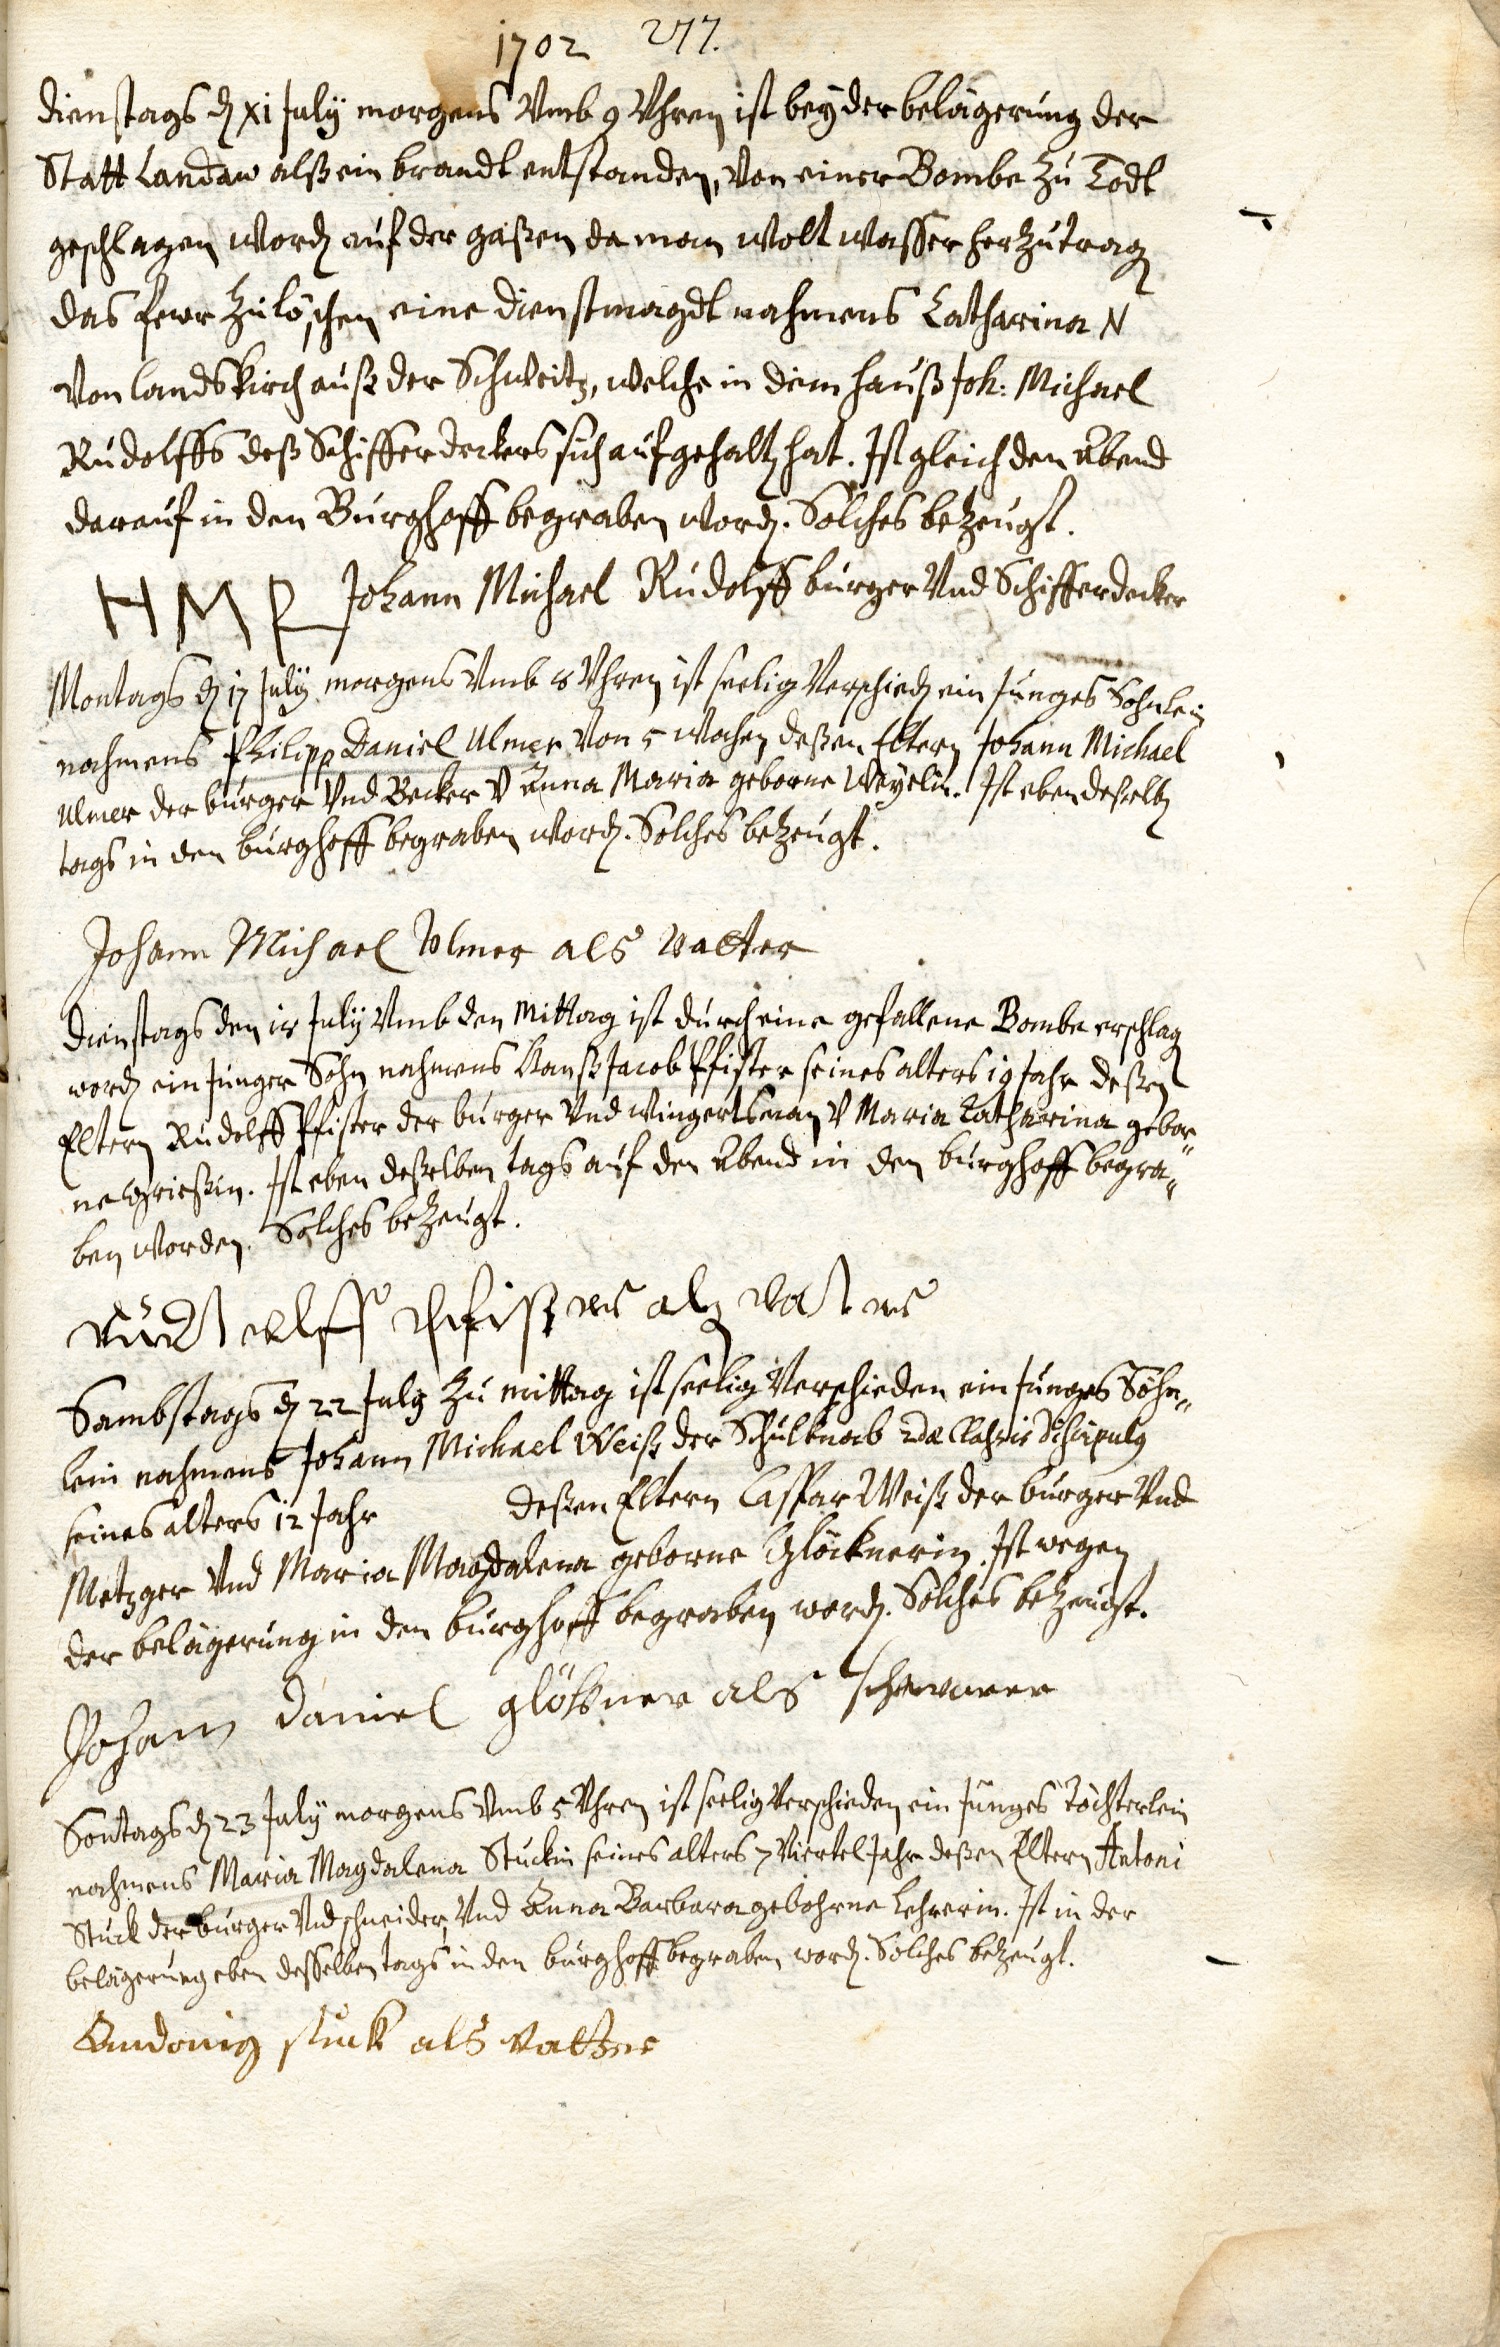 1702 277.
Dienstags dn XI July morgens Vmb 9 Vhren ist bey der belägerung der
Statt Landaw alß ein brandt entstanden, Von einer Bombe zu Todt
geschlagen worden auf der gaßen da man wolt wasser herzutragen
das fewr zulöschen eine dienstmagdt nahmens Catharina N
Von landskirch auß der Schweitz, welche in dem hauß Joh: Michael
Rudolffs deß Schifferdeckers sich aufgehalten hat. Ist gleich den Abend
darauf in den Burghoff begraben worden. Solches bezeugt.
H M R Johann Michael Rudolff burger Vnd Schifferdecker
Montags dn 17 July morgens Vmb 8 Vhren ist seelig Verschieden ein Junges Söhnlein
nahmens Philipp Daniel Ulmer Von 5 wochen deßen Eltern Johann Michael
Ulmer der burger Vnd Becker V Anna Maria geborne Weyelin. Ist eben deßelben
tags in den burghoff begraben worden. Solches bezeugt.
Johann Michael Volmer als vatter
Dienstags den 18 July Vmb den Mittag ist durch eine gefallene Bombe erschlagen
worden ein Junger Sohn nahmens Hanß Jacob Pfister seines alters 19 Jahr deßen
Eltern Rudolff Pfister der burger Vnd wingertsman V Maria Catharina gebor"
ne Grießin. Ist eben deßelben tags auf den Abend in den burghoff begra"
ben worden. Solches bezeugt.
als vatter
Sambstags dn 22 July zu mittag ist seelig Verschieden ein Junges Söhn"
lein nahmens Johann Michael Weiß der Schulknab 2dæ Classis Discipulg
seines alters 12 Jahr deßen Eltern Casspar Weiß der burger Vnd
Metzger Vnd Maria Magdalena geborne Glöcknerin. Ist wegen
der belägerung in den burghoff begraben worden. Solches bezeugt.
Johann Daniel glökner als schwarer
Sontags dn 23 July morgens Vmb 5 Vhren ist seelig Verschieden ein Junges Töchterlein
nahmens Maria Magdalena Stuckin seines alters 7 Viertel Jahr deßen Eltern Antoni
Stuck der burger Vnd schneider, Vnd Anna Barbara gebohrne Lehrerin. Ist in der
belägerung eben desselben tags in den burghoff begraben worden. Solches bezeugt.
Andonig stuck als vatter